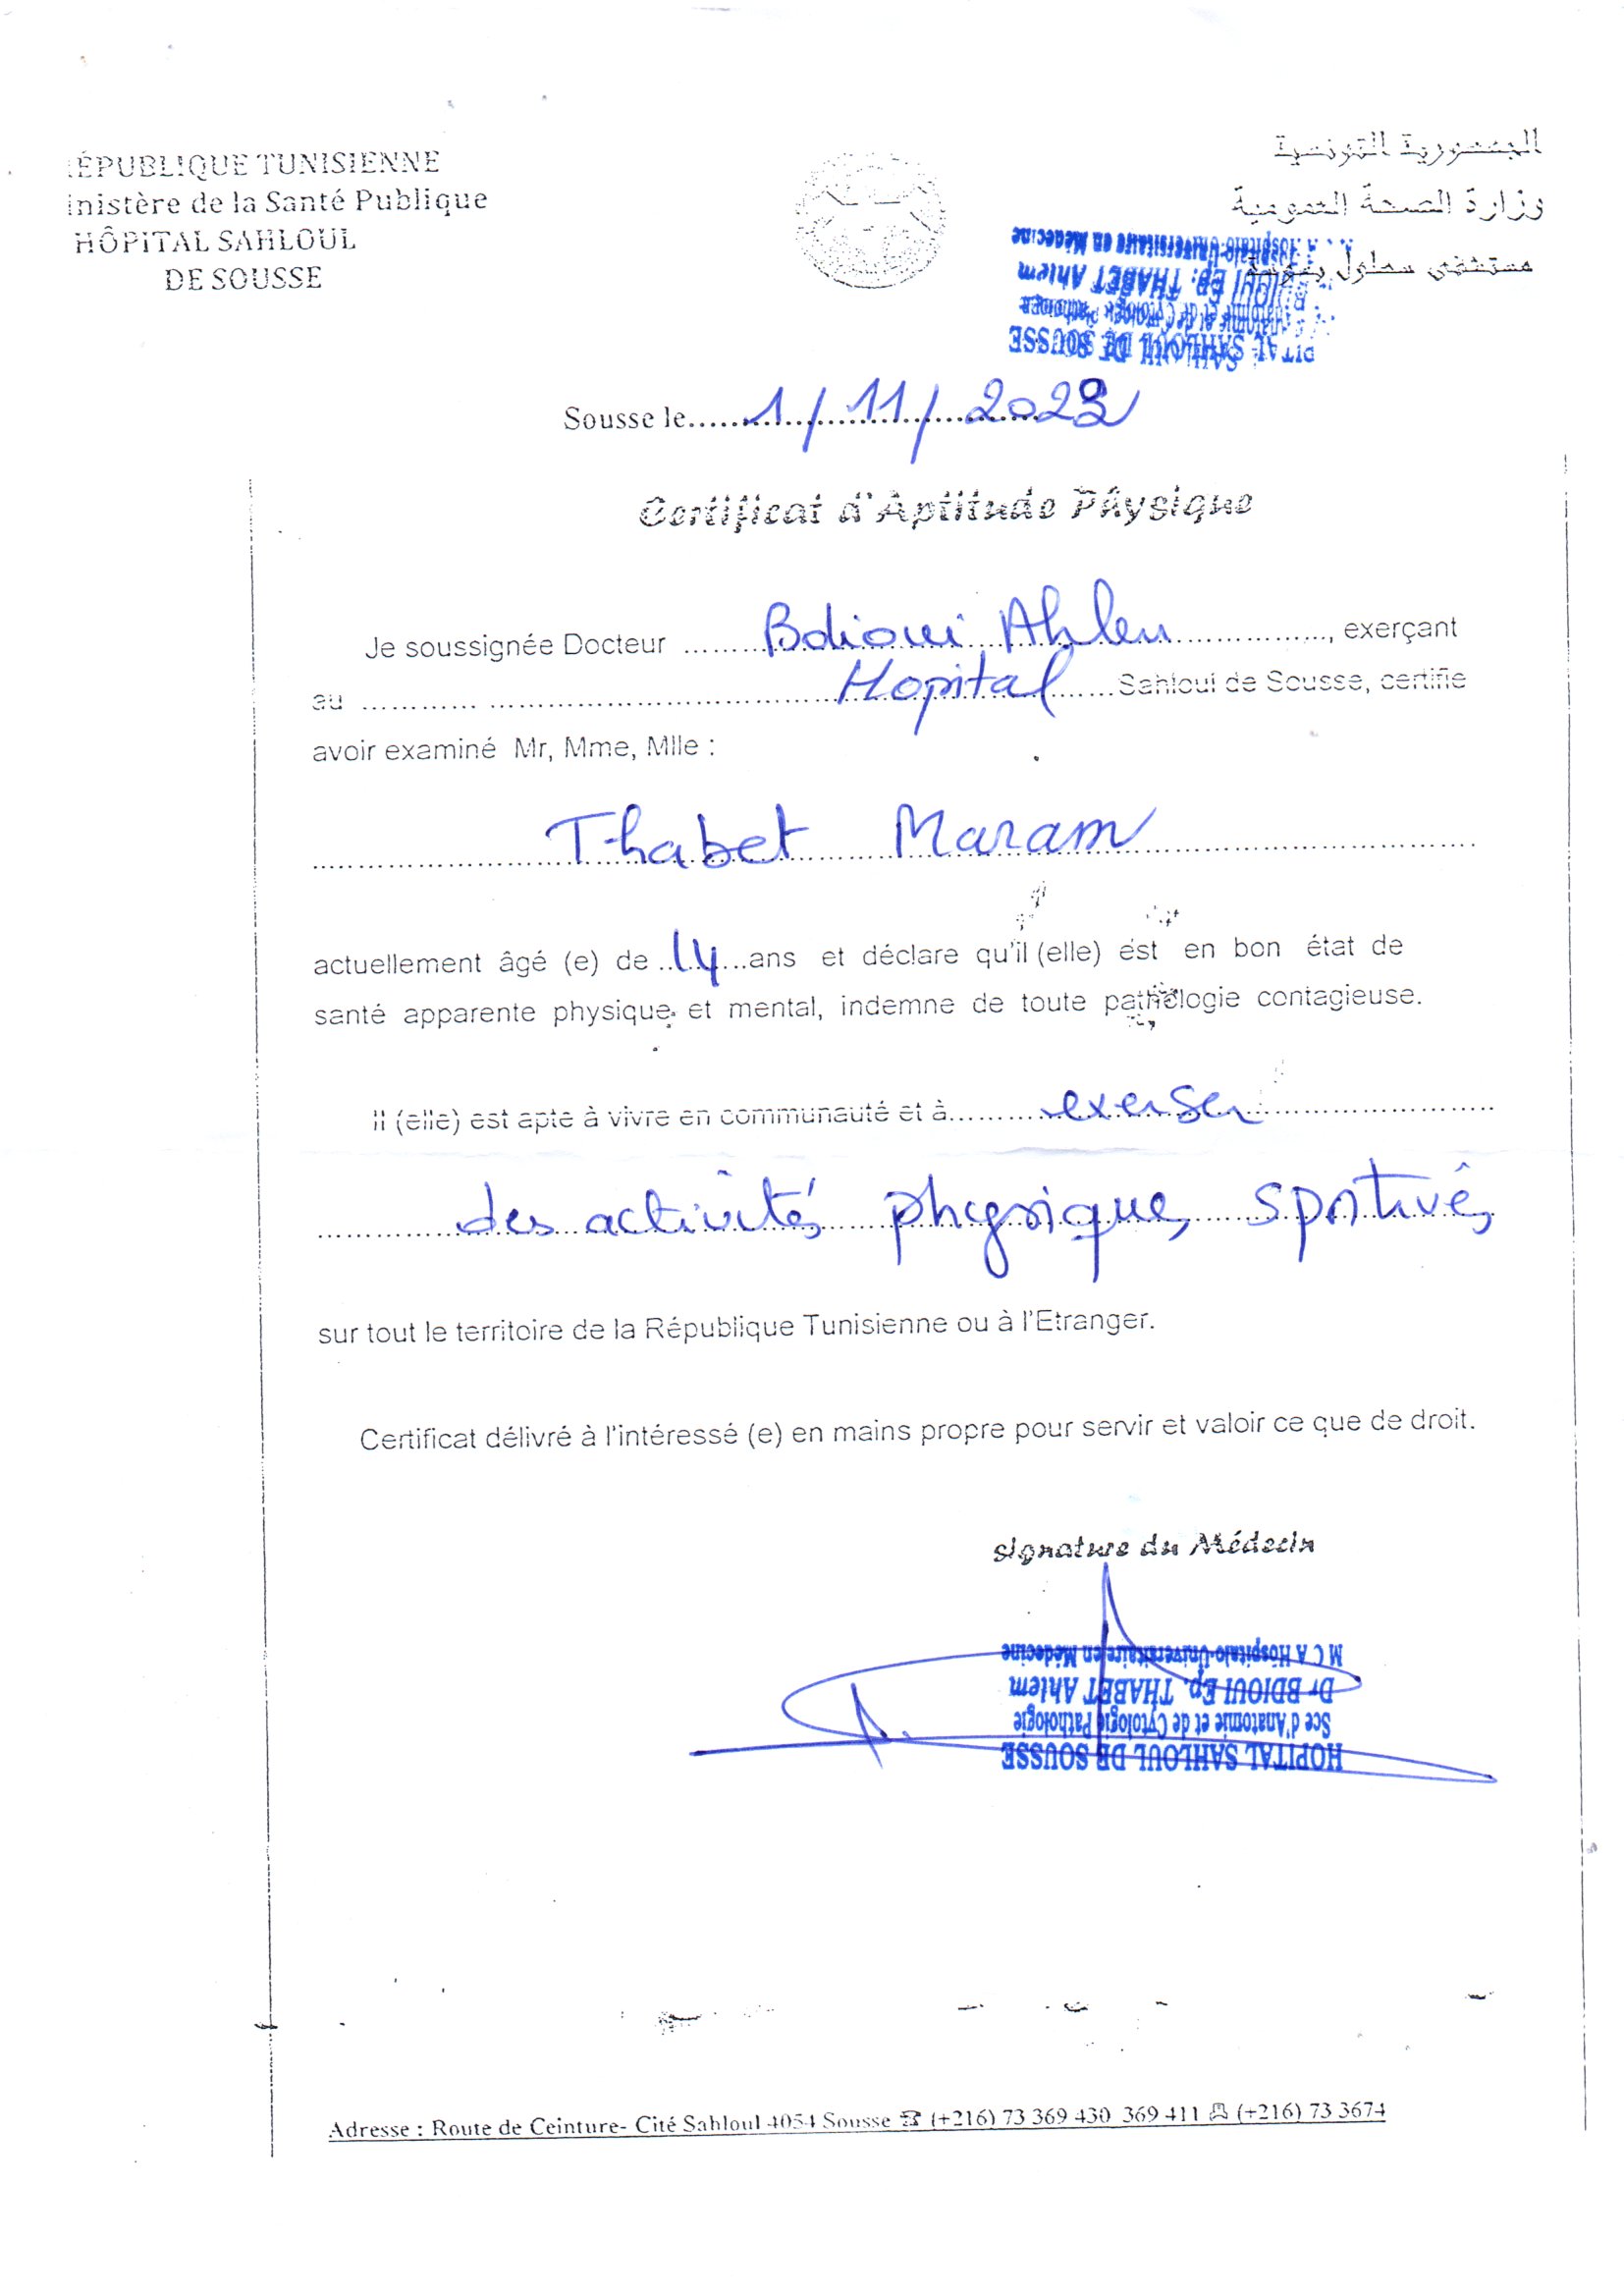 ÉPUBLIQUE TUNISIENNE
inistère de la Santé Publique
HÔPITAL SAHLOUL
DE SOUSSE
الجمهورية التونسية
وزارة الصحة العمومية
مستشفى سهلول بسوسة
Hospitalo-Universitaire en Médecine
Ep. THABET Ahlem
d'Anatomie et de Cytologie Pathologie
PITAL SAHLOUL DE SOUSSE
Sousse le.....1/11/2023
Certificat d'Aptitude Physique
Je soussignée Docteur Bdioui Ahlem, exerçant
au Hopital Sahloul de Sousse, certifie
avoir examiné Mr, Mme, Mlle :
Thabet Maram
actuellement âgé (e) de 14 ans et déclare qu'il (elle) est en bon état de
santé apparente physique et mental, indemne de toute pathologie contagieuse.
Il (elle) est apte à vivre en communauté et à exerser
des activités physiques sportives
sur tout le territoire de la République Tunisienne ou à l'Etranger.
Certificat délivré à l'intéressé (e) en mains propre pour servir et valoir ce que de droit.
signature du Médecin
M C A Hospitalo-Universitaire en Médecine
Dr BDIOUI Ep. THABET Ahlem
Sce d'Anatomie et de Cytologie Pathologie
HOPITAL SAHLOUL DE SOUSSE
Adresse : Route de Ceinture- Cité Sahloul 4054 Sousse ☎ (+216) 73 369 430 369 411 (+216) 73 3674